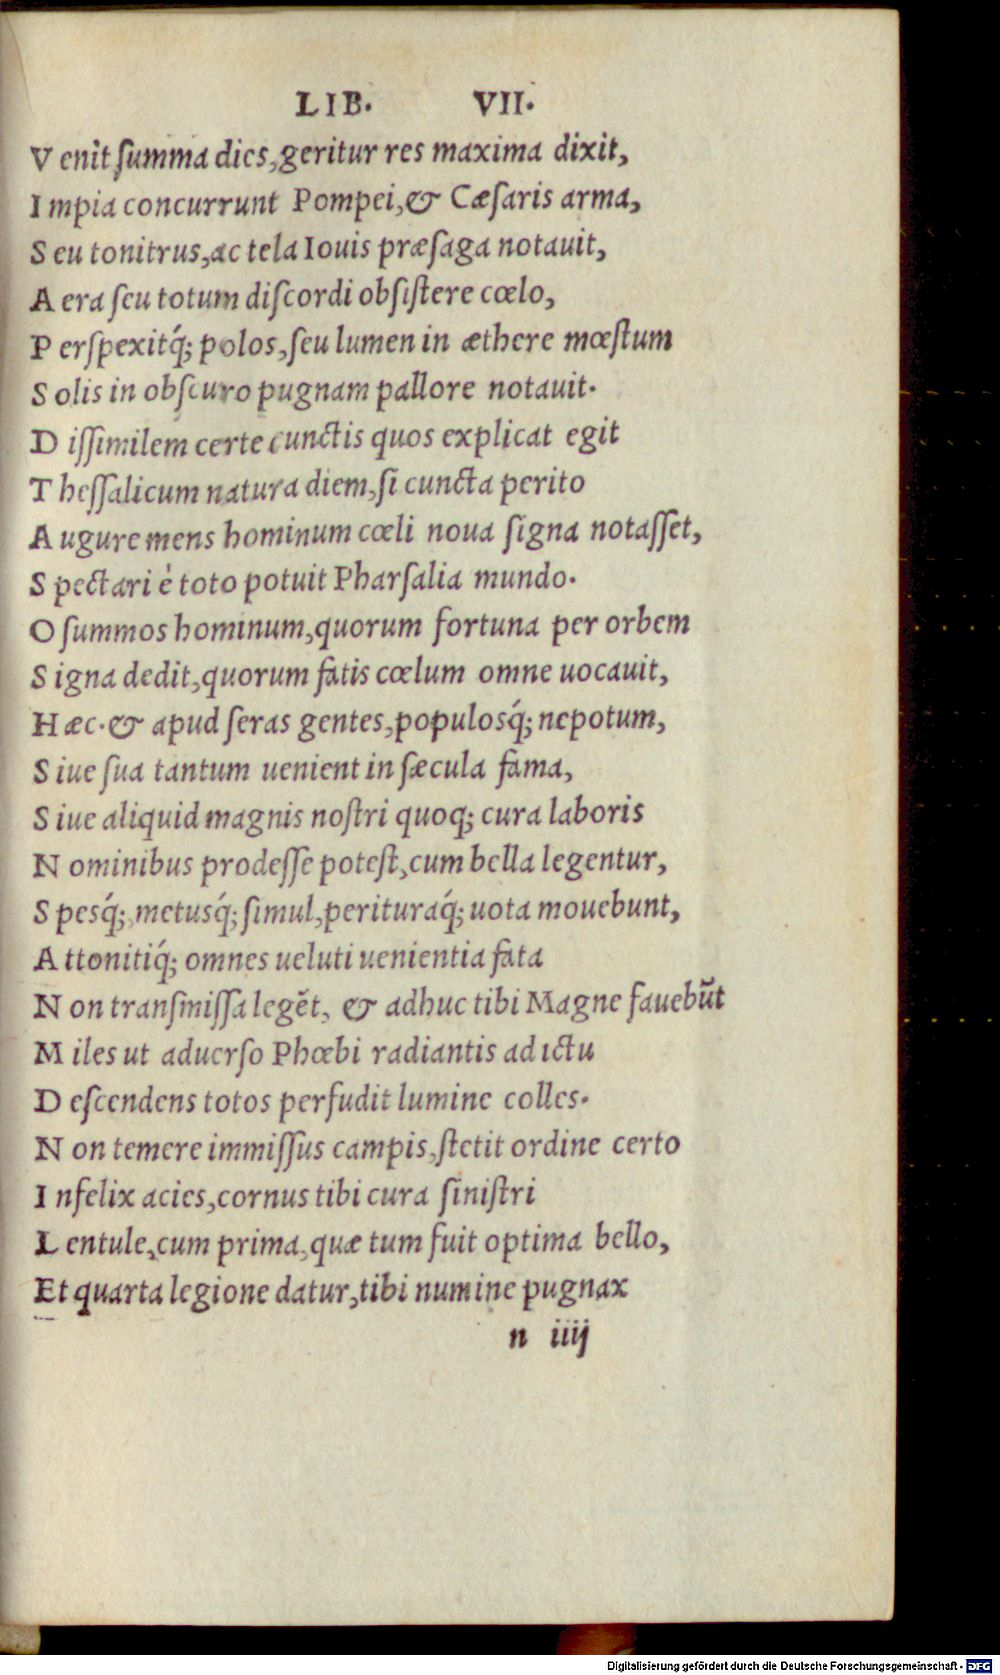 LIB. VII.
V enit ſumma dies, geritur res maxima dixit,
I mpia concurrunt Pompei, & Cæſaris arma,
S eu tonitrus, ac tela Iouis præſaga notauit,
A era ſeu totum diſcordi obſiſtere cœlo,
P erſpexitq́; polos, ſeu lumen in æthere mœſtum
S olis in obſcuro pugnam pallore notauit.
D iſſimilem certe cunctis quos explicat egit
T heſſalicum natura diem, ſi cuncta perito
A ugure mens hominum cœli noua ſigna notaſſet,
S pectari è toto potuit Pharſalia mundo.
O ſummos hominum, quorum fortuna per orbem
S igna dedit, quorum fatis cœlum omne uocauit,
H æc. & apud ſeras gentes, populosq́; nepotum,
S iue ſua tantum uenient in ſæcula fama,
S iue aliquid magnis noſtri quoq; cura laboris
N ominibus prodeſſe poteſt, cum bella legentur,
S pesq́;, metusq́; ſimul, perituraq́; uota mouebunt,
A ttonitiq́; omnes ueluti uenientia fata
N on tranſmiſſa legēt, & adhuc tibi Magne fauebūt
M iles ut aduerſo Phœbi radiantis ad ictu
D eſcendens totos perfudit lumine colles.
N on temere immiſſus campis, ſtetit ordine certo
I nfelix acies, cornus tibi cura ſiniſtri
L entule, cum prima, quæ tum fuit optima bello,
Et quarta legione datur, tibi numine pugnax
n iiij
Digitalisierung gefördert durch die Deutsche Forschungsgemeinschaft - DFG